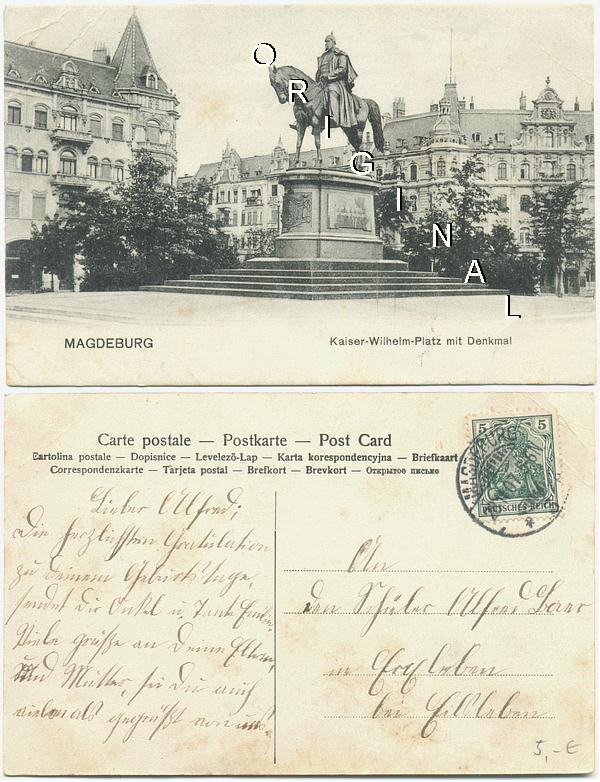 ORIGINAL
MAGDEBURG
Kaiser-Wilhelm-Platz mit Denkmal
Carte postale — Postkarte — Post Card
Cartolina postale — Dopisnice — Levelező-Lap — Karta korespondencyjna — Briefkaart
Correspondenzkarte — Tarjeta postal — Brefkort — Brevkort — Открытое письмо
5 5
DEUTSCHES REICH
MAGDEBURG
Lieber Alfred;
Die herzlichsten Gratulation
zu Deinem Geburtstage,
sendet Dir Onkel u. Tante
Viele Grüße an Deine Eltern,
und Mutter, sei Du auch
vielmals gegrüßt von uns.
An
den Schüler Alfred
in Erxleben
bei Eilsleben
5,-€